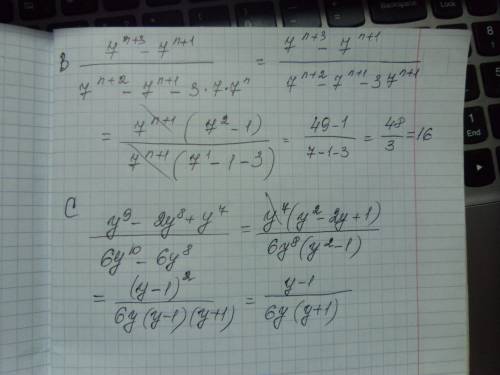 B (7^(n+3) - 7^(n+1)) / (7^(n+2) - 7^(n+1) - 3·7·7^n) = (7^(n+3) - 7^(n+1)) / (7^(n+2) - 7^(n+1) - 3 7^(n+1))
= (7^(n+1) (7^2 - 1)) / (7^(n+1) (7^1 - 1 - 3)) = (49-1) / (7-1-3) = 48/3 = 16
C (y^9 - 2y^8 + y^7) / (6y^10 - 6y^8) = (y^7 (y^2 - 2y + 1)) / (6y^8 (y^2 - 1))
= (y-1)^2 / (6y (y-1) (y+1)) = (y-1) / (6y (y+1))